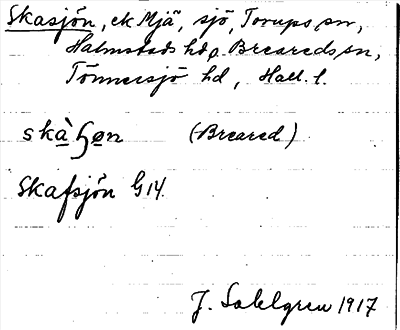 Skasjön, ek Mjä, sjö, Torups sn,
Halmstads hd o. Breareds sn,
Tönnersjö hd, Hall. l.
skàɧøn (Breared)
Skafsjön G14
J. Sahlgren 1917